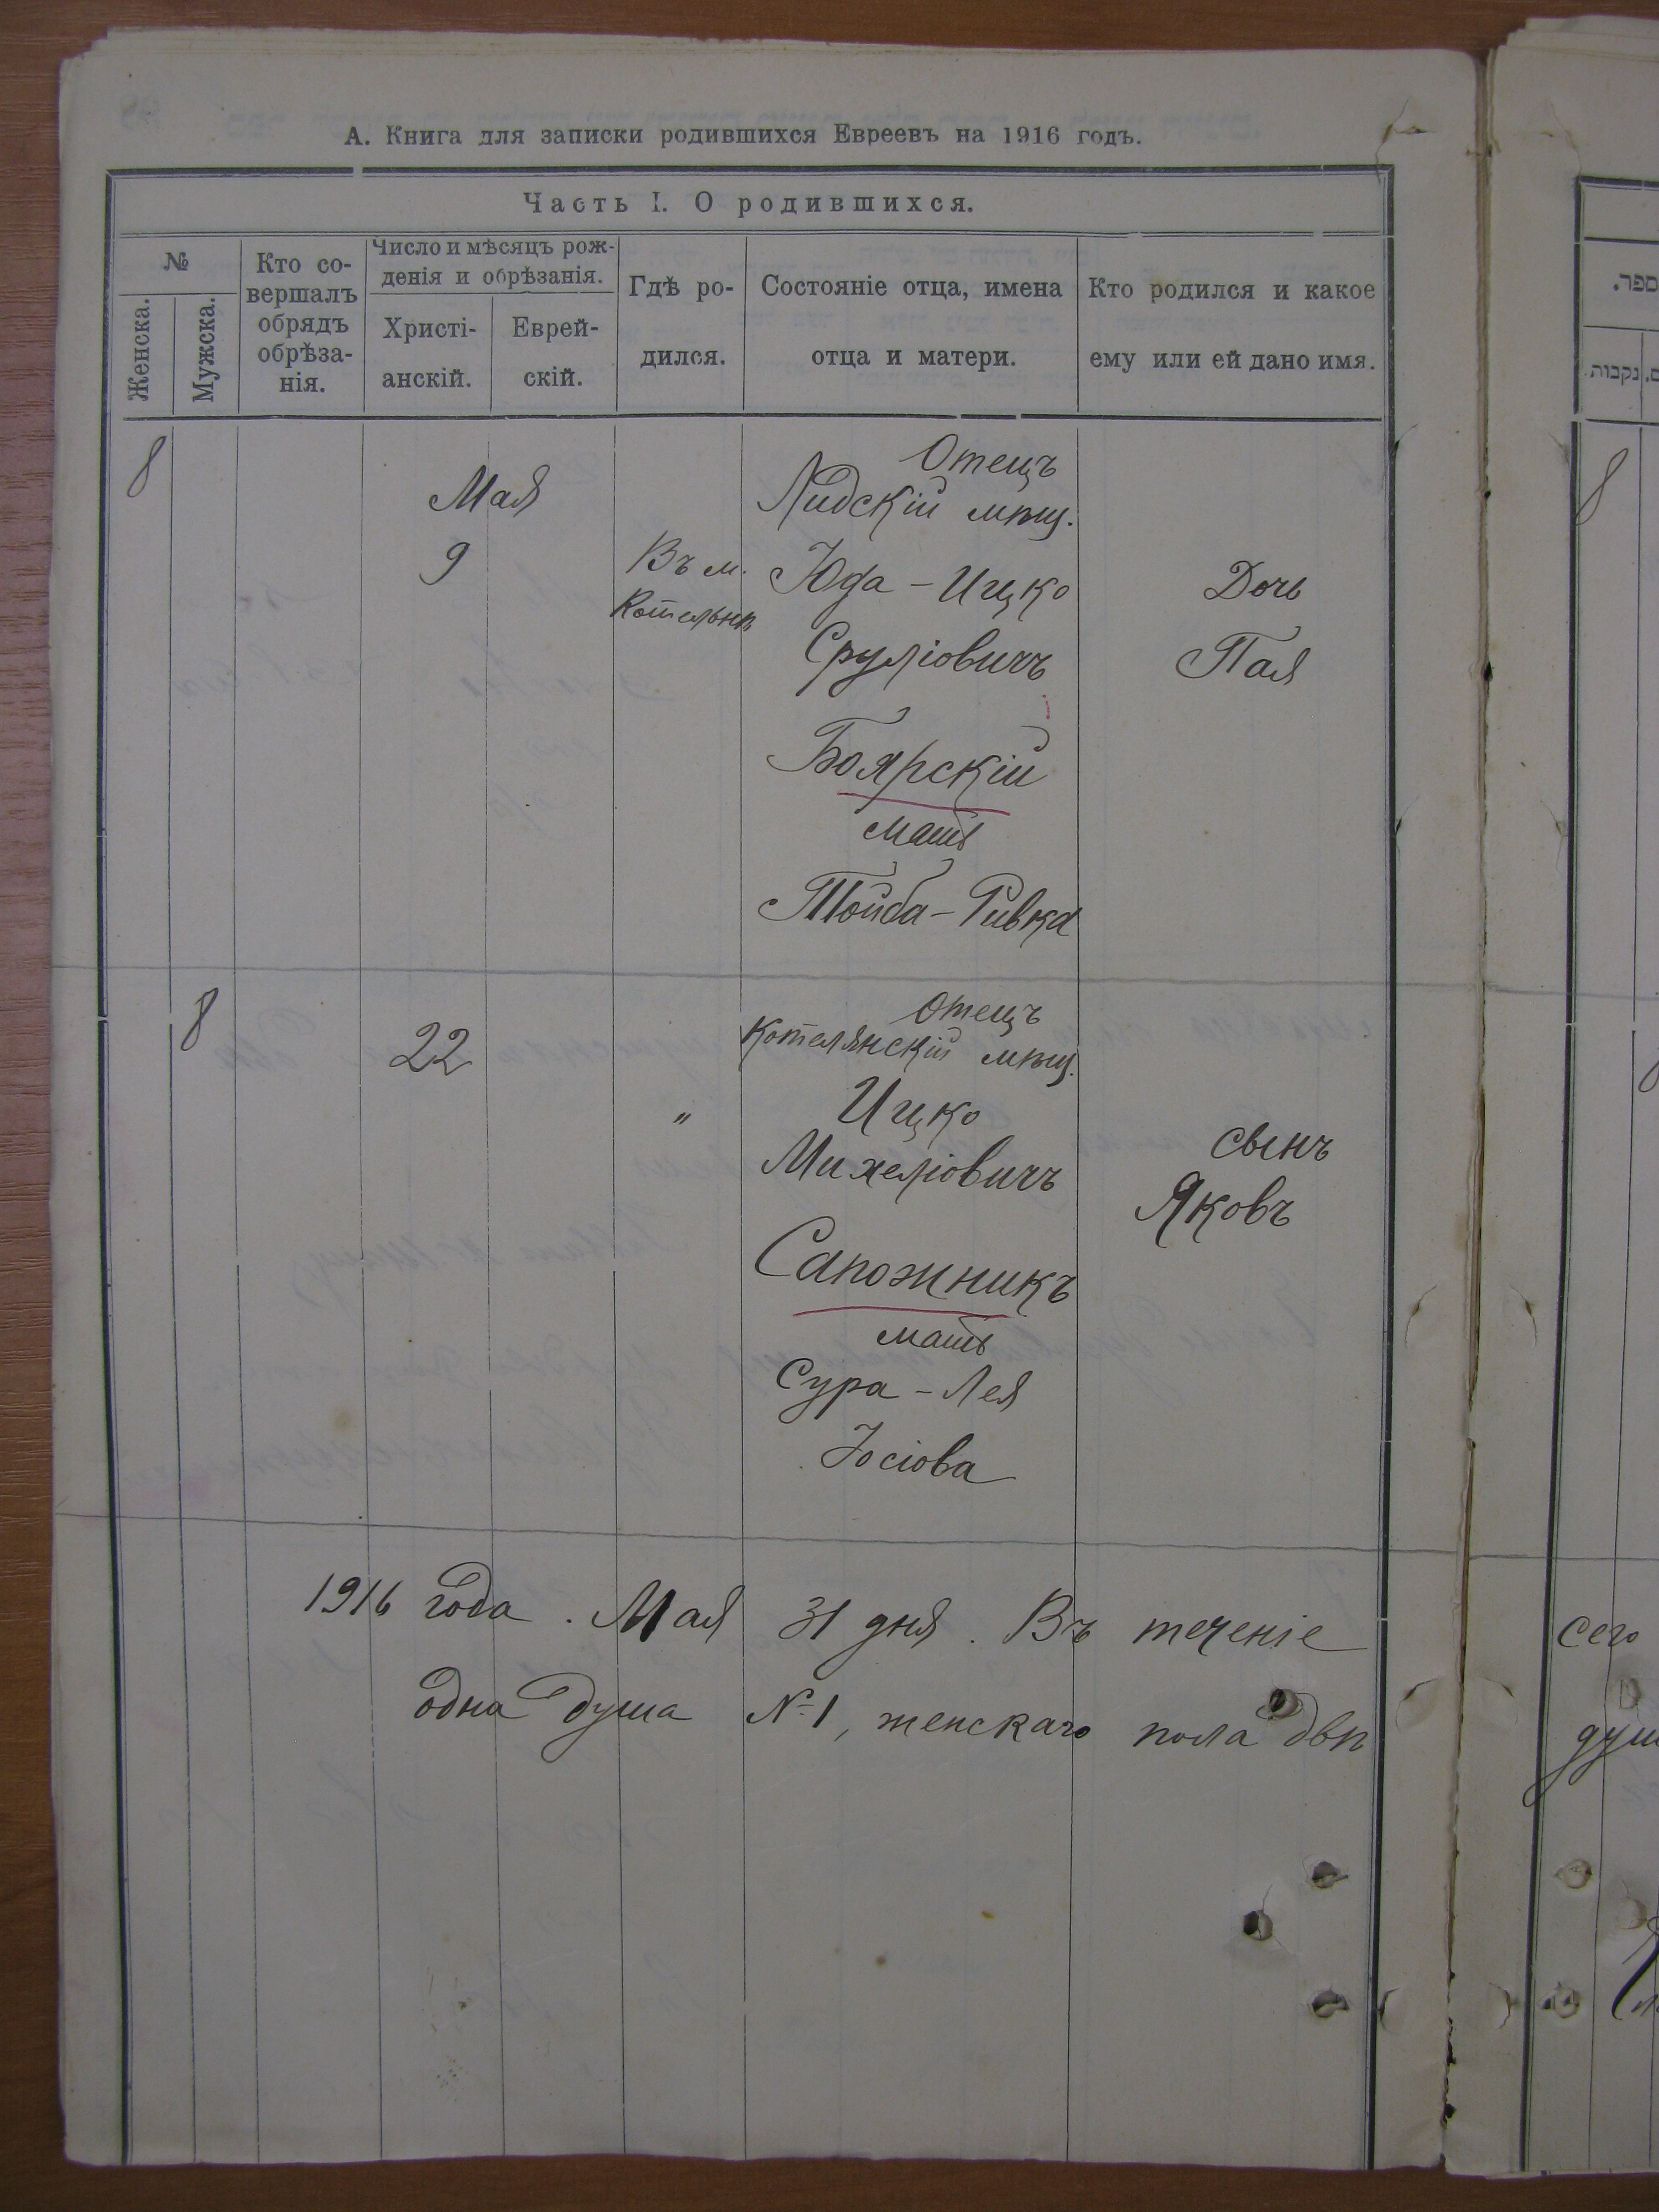 А. Книга для записки родившихся Евреевъ на 1916 годъ.
Часть I. О родившихся.
№
Женска.
Мужска.
Кто со-
вершалъ
обрядъ
обрѣза-
нія.
Число и мѣсяцъ рож-
денія и обрѣзанія.
Христі-
анскій.
Еврей-
скій.
Гдѣ ро-
дился.
Состояніе отца, имена
отца и матери.
Кто родился и какое
ему или ей дано имя.
8
Мая
9
Въ м.
Котельнѣ
Отецъ
Лидскій мѣщ.
Юда-Ицко
Сруліовичъ
Боярскій
мать
Тойба-Ривка
Дочь
Пая
8
22
"
Отецъ
Котелянскій мѣщ.
Ицко
Михеліовичъ
Сапожникъ
мать
Сура-Лея
Іосіова
сынъ
Яковъ
1916 года. Мая 31 дня. Въ теченіе
одна душа №1, женскаго пола двѣ
ספר.
נקבות.
8
сего
душ